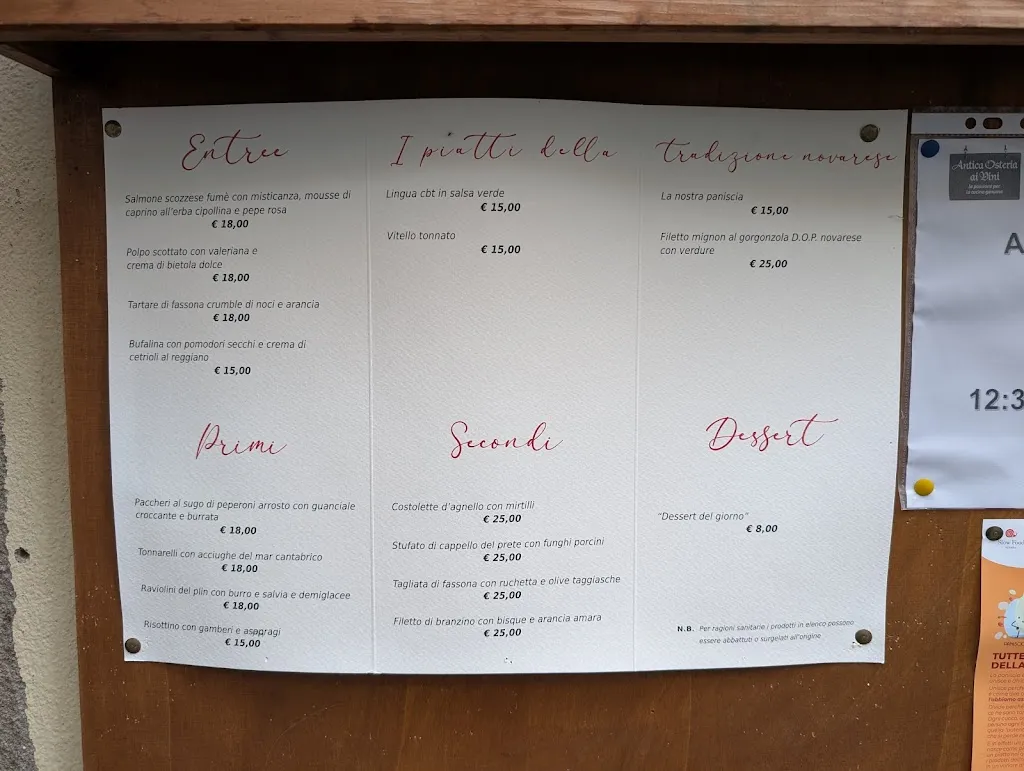 Entree
Salmone scozzese fumè con misticanza, mousse di
caprino all'erba cipollina e pepe rosa
€ 18,00
Polpo scottato con valeriana e
crema di bietola dolce
€ 18,00
Tartare di fassona crumble di noci e arancia
€ 18,00
Bufalina con pomodori secchi e crema di
cetrioli al reggiano
€ 15,00
I piatti della tradizione novarese
Lingua cbt in salsa verde
€ 15,00
Vitello tonnato
€ 15,00
La nostra paniscia
€ 15,00
Filetto mignon al gorgonzola D.O.P. novarese
con verdure
€ 25,00
Primi
Paccheri al sugo di peperoni arrosto con guanciale
croccante e burrata
€ 18,00
Tonnarelli con acciughe del mar cantabrico
€ 18,00
Raviolini del plin con burro e salvia e demiglacee
€ 18,00
Risottino con gamberi e asparagi
€ 15,00
Secondi
Costolette d'agnello con mirtilli
€ 25,00
Stufato di cappello del prete con funghi porcini
€ 25,00
Tagliata di fassona con ruchetta e olive taggiasche
€ 25,00
Filetto di branzino con bisque e arancia amara
€ 25,00
Dessert
"Dessert del giorno"
€ 8,00
N.B. Per ragioni sanitarie i prodotti in elenco possono
essere abbattuti o surgelati all'origine
Antica Osteria
ai Vini
A
12:3
Slow Food
TUTTE
DELLA